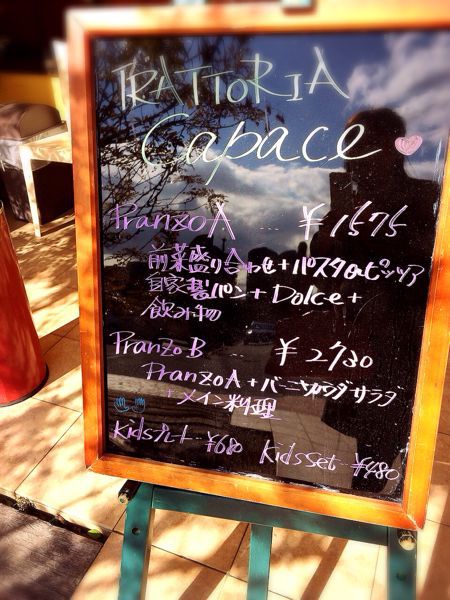 TRATTORIA
Capace
Pranzo A ... ¥1575
前菜盛り合わせ+パスタorピッツァ
自家製パン+Dolce+
飲み物
Pranzo B ... ¥2730
Pranzo A+バーニャカウダサラダ
+メイン料理
kidsプレート ¥680 kidsset ¥480